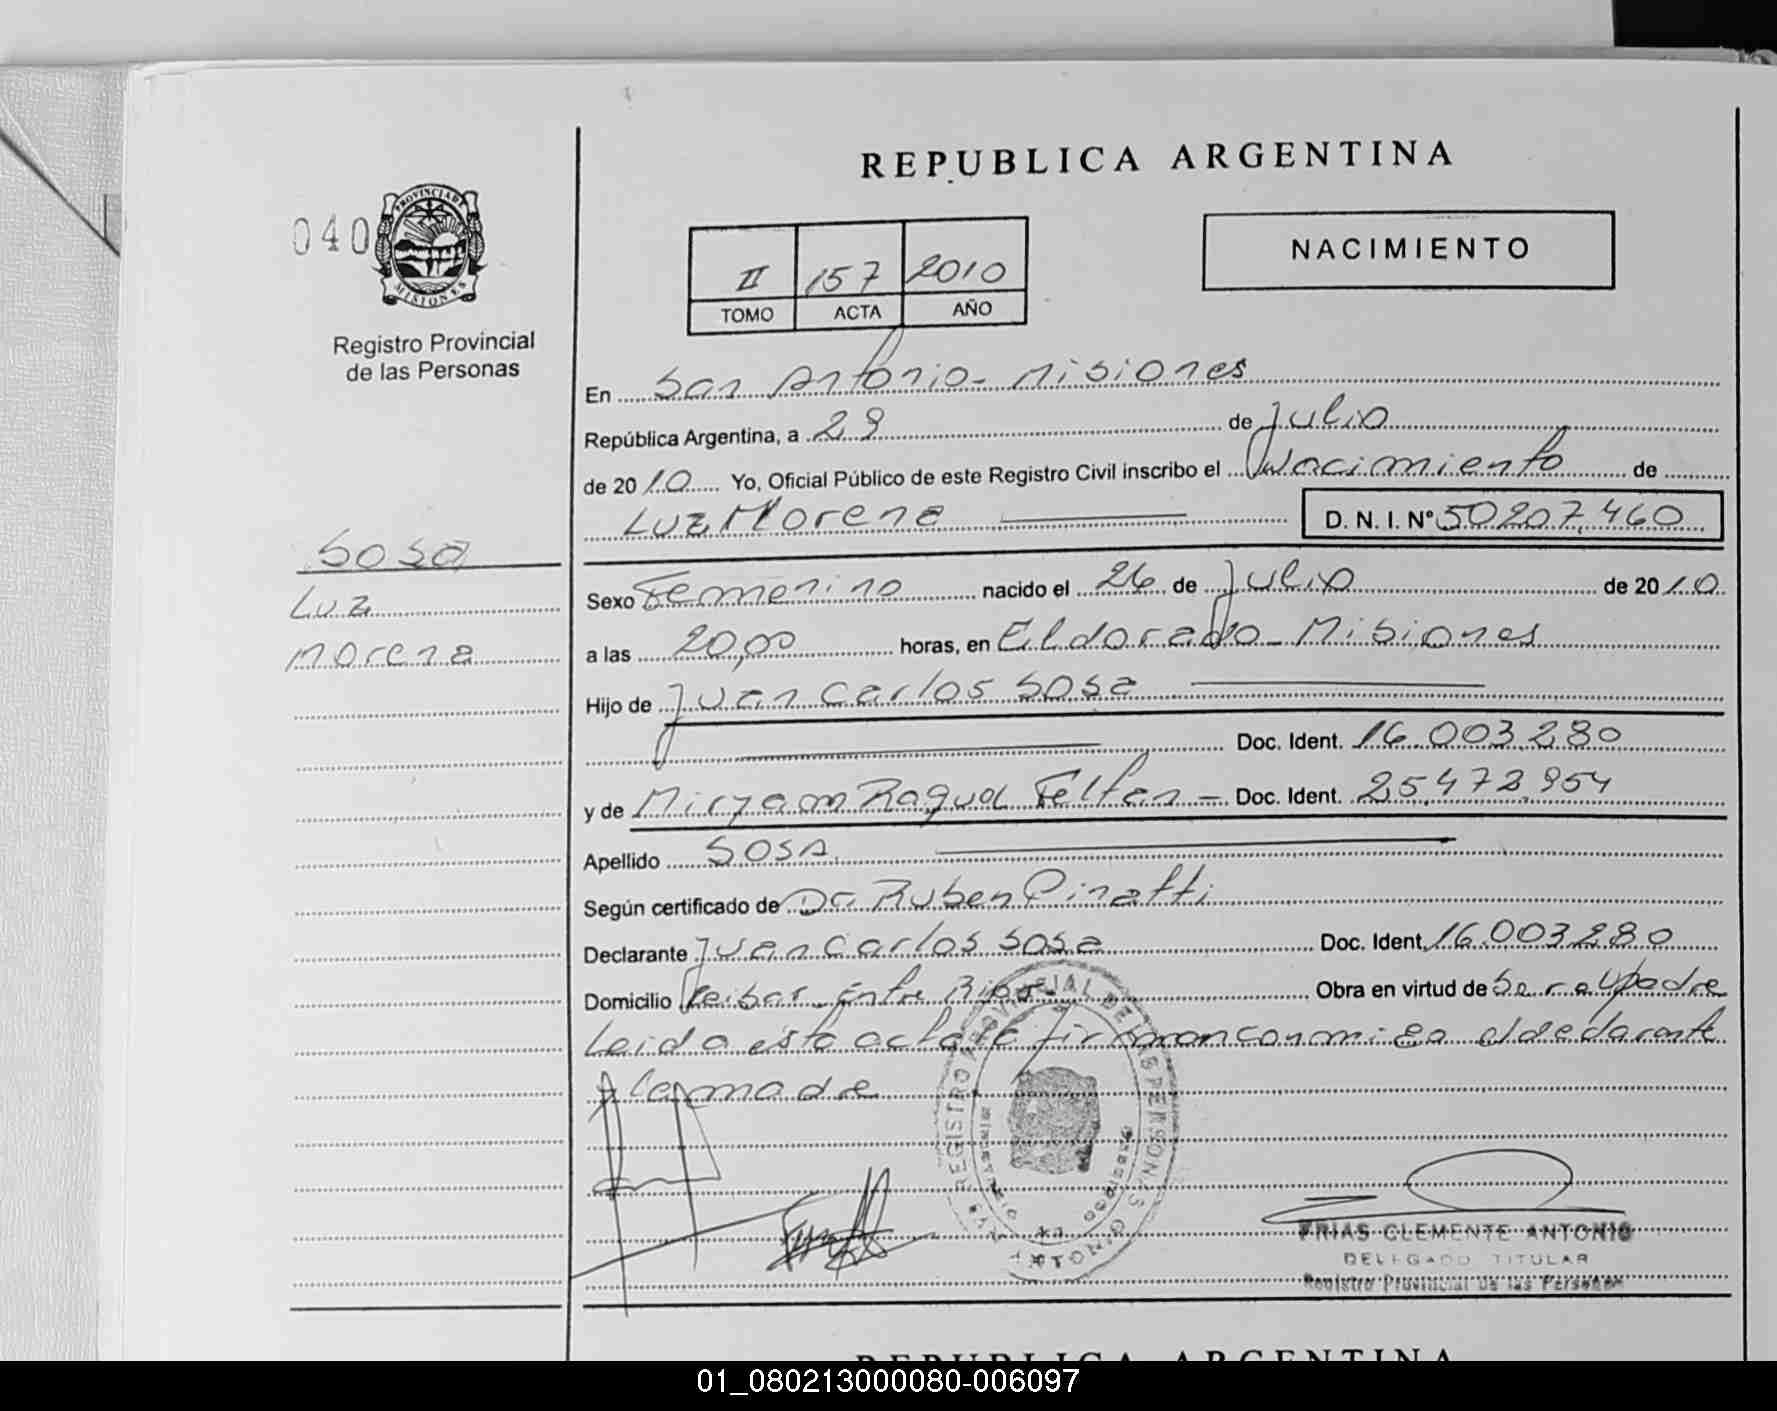 REPUBLICA ARGENTINA
040
PROVINCIA DE
MISIONES
Registro Provincial
de las Personas
II 157 2010
TOMO ACTA AÑO
NACIMIENTO
En San Antonio - Misiones
República Argentina, a 29 de Julio
de 2010 Yo, Oficial Público de este Registro Civil inscribo el Nacimiento de
Luz Morena D. N. I. Nº 50207460
Sosa
Luz
Morena
Sexo Femenino nacido el 26 de Julio de 2010
a las 20,00 horas, en Eldorado - Misiones
Hijo de Juan Carlos Sosa
Doc. Ident. 16.003.280
y de Miryam Raquel Doc. Ident.
Apellido SOSA
Según certificado de Dr. Ruben Pinatti
Declarante Juan Carlos Sosa Doc. Ident. 16.003280
Domicilio Entre Rios Obra en virtud de Ser el padre
Leida esta acta firman conmigo el declarante
y la madre
REGISTRO PROVINCIAL DE LAS PERSONAS
FRIAS CLEMENTE ANTONIO
DELEGADO TITULAR
Registro Provincial de las Personas
REPUBLICA ARGENTINA
01_080213000080-006097